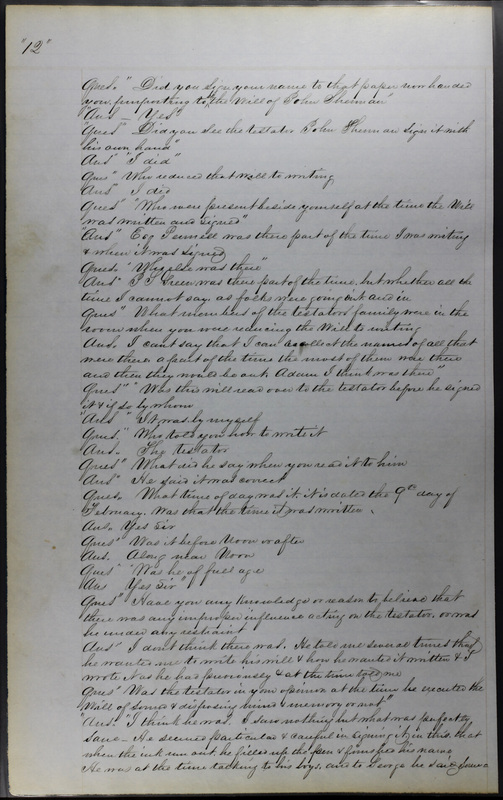 "12"
Ques. " Did you sign your name to that paper now handed
you, purporting to be the Will of John Sherman"
"Ans – Yes"
"Ques" Did you see the testator John Sherman sign it with
his own hand"
Ans" "I did"
Ques" Who reduced that Will to writing
Ans" I did
Ques" "Who were present beside yourself at the time the Will
was written and signed"
"Ans" Esq Pennell was there part of the time I was writing
& when it was signed
Ques. "Who else was there"
Ans" Green was there part of the time, but whether all the
time I cannot say, as folks were going out and in
Ques" What members of the testators family were in the
room when you were reducing the Will to writing
Ans. I cant say that I can recollect the names of all that
were there a part of the time the most of them were there
and then they would be out. Adam I think was there"
Ques" "Was this will read over to the testator before he signed
it & if so by whom
"Ans" "It was by myself
Ques. " Who told you how to write it
Ans. The testator
Ques" What did he say when you read it to him
Ans" He said it was correct
Ques. What time of day was it. it is dated the 9th day of
February. Was that the time it was written.
Ans. Yes Sir
Ques" Was it before Noon or after
Ans. Along near Noon
Ques" "Was he of full age
Ans Yes Sir"
Ques" Have you any knowledge or reason to believe that
there was any improper influence acting on the testator, or was
he under any restraint
Ans" I dont think there was. He told me several times that
he wanted me to write his will & how he wanted it written & I
wrote it as he had previously & at the time told me
Ques" Was the testator in your opinion at the time he executed the
Will of sound & disposing mind & memory or not"
"Ans. "I think he was. I saw nothing but what was perfectly
sane – He seemed particular & careful in signing it, in this, that
when the ink run out he filled up the pen & finished his name
He was at the time talking to his boys, and to George he said